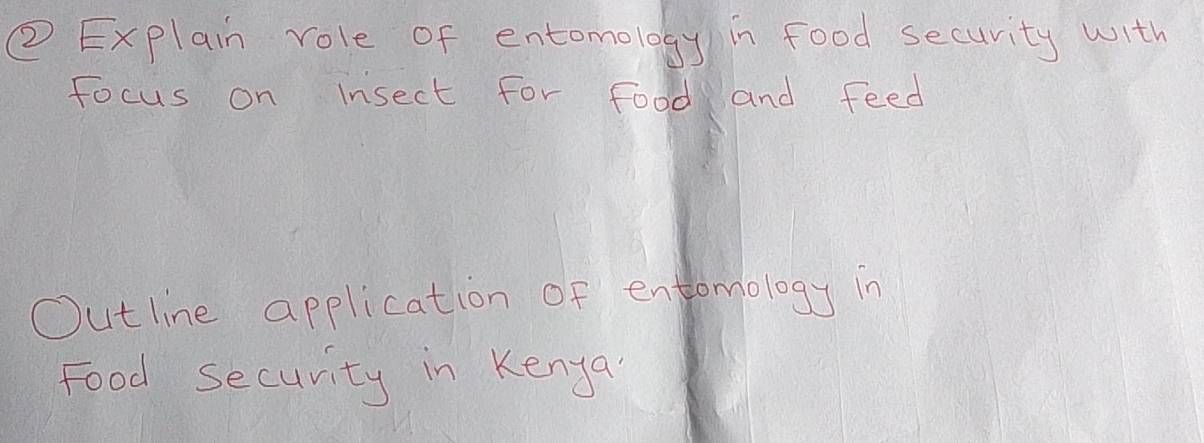 ② Explain role of entomology in food security with
focus on insect for food and feed
Outline application of entomology in
Food security in Kenya.